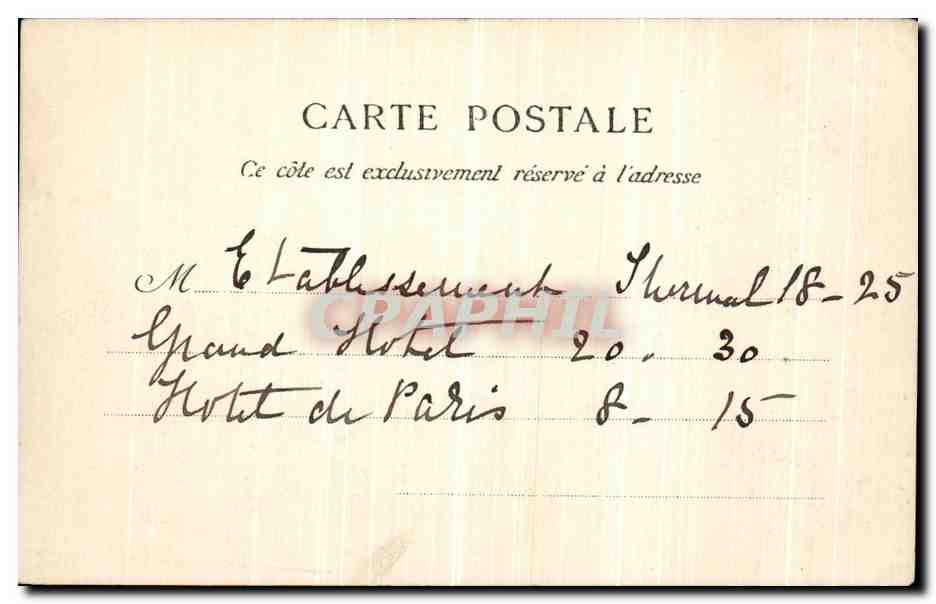 CARTE POSTALE
Ce côté est exclusivement réservé à l'adresse
M Etablissement Thermal 18 - 25
CPAPHIL
Grand Hotel 20 . 30
Hotel de Paris 8 - 15